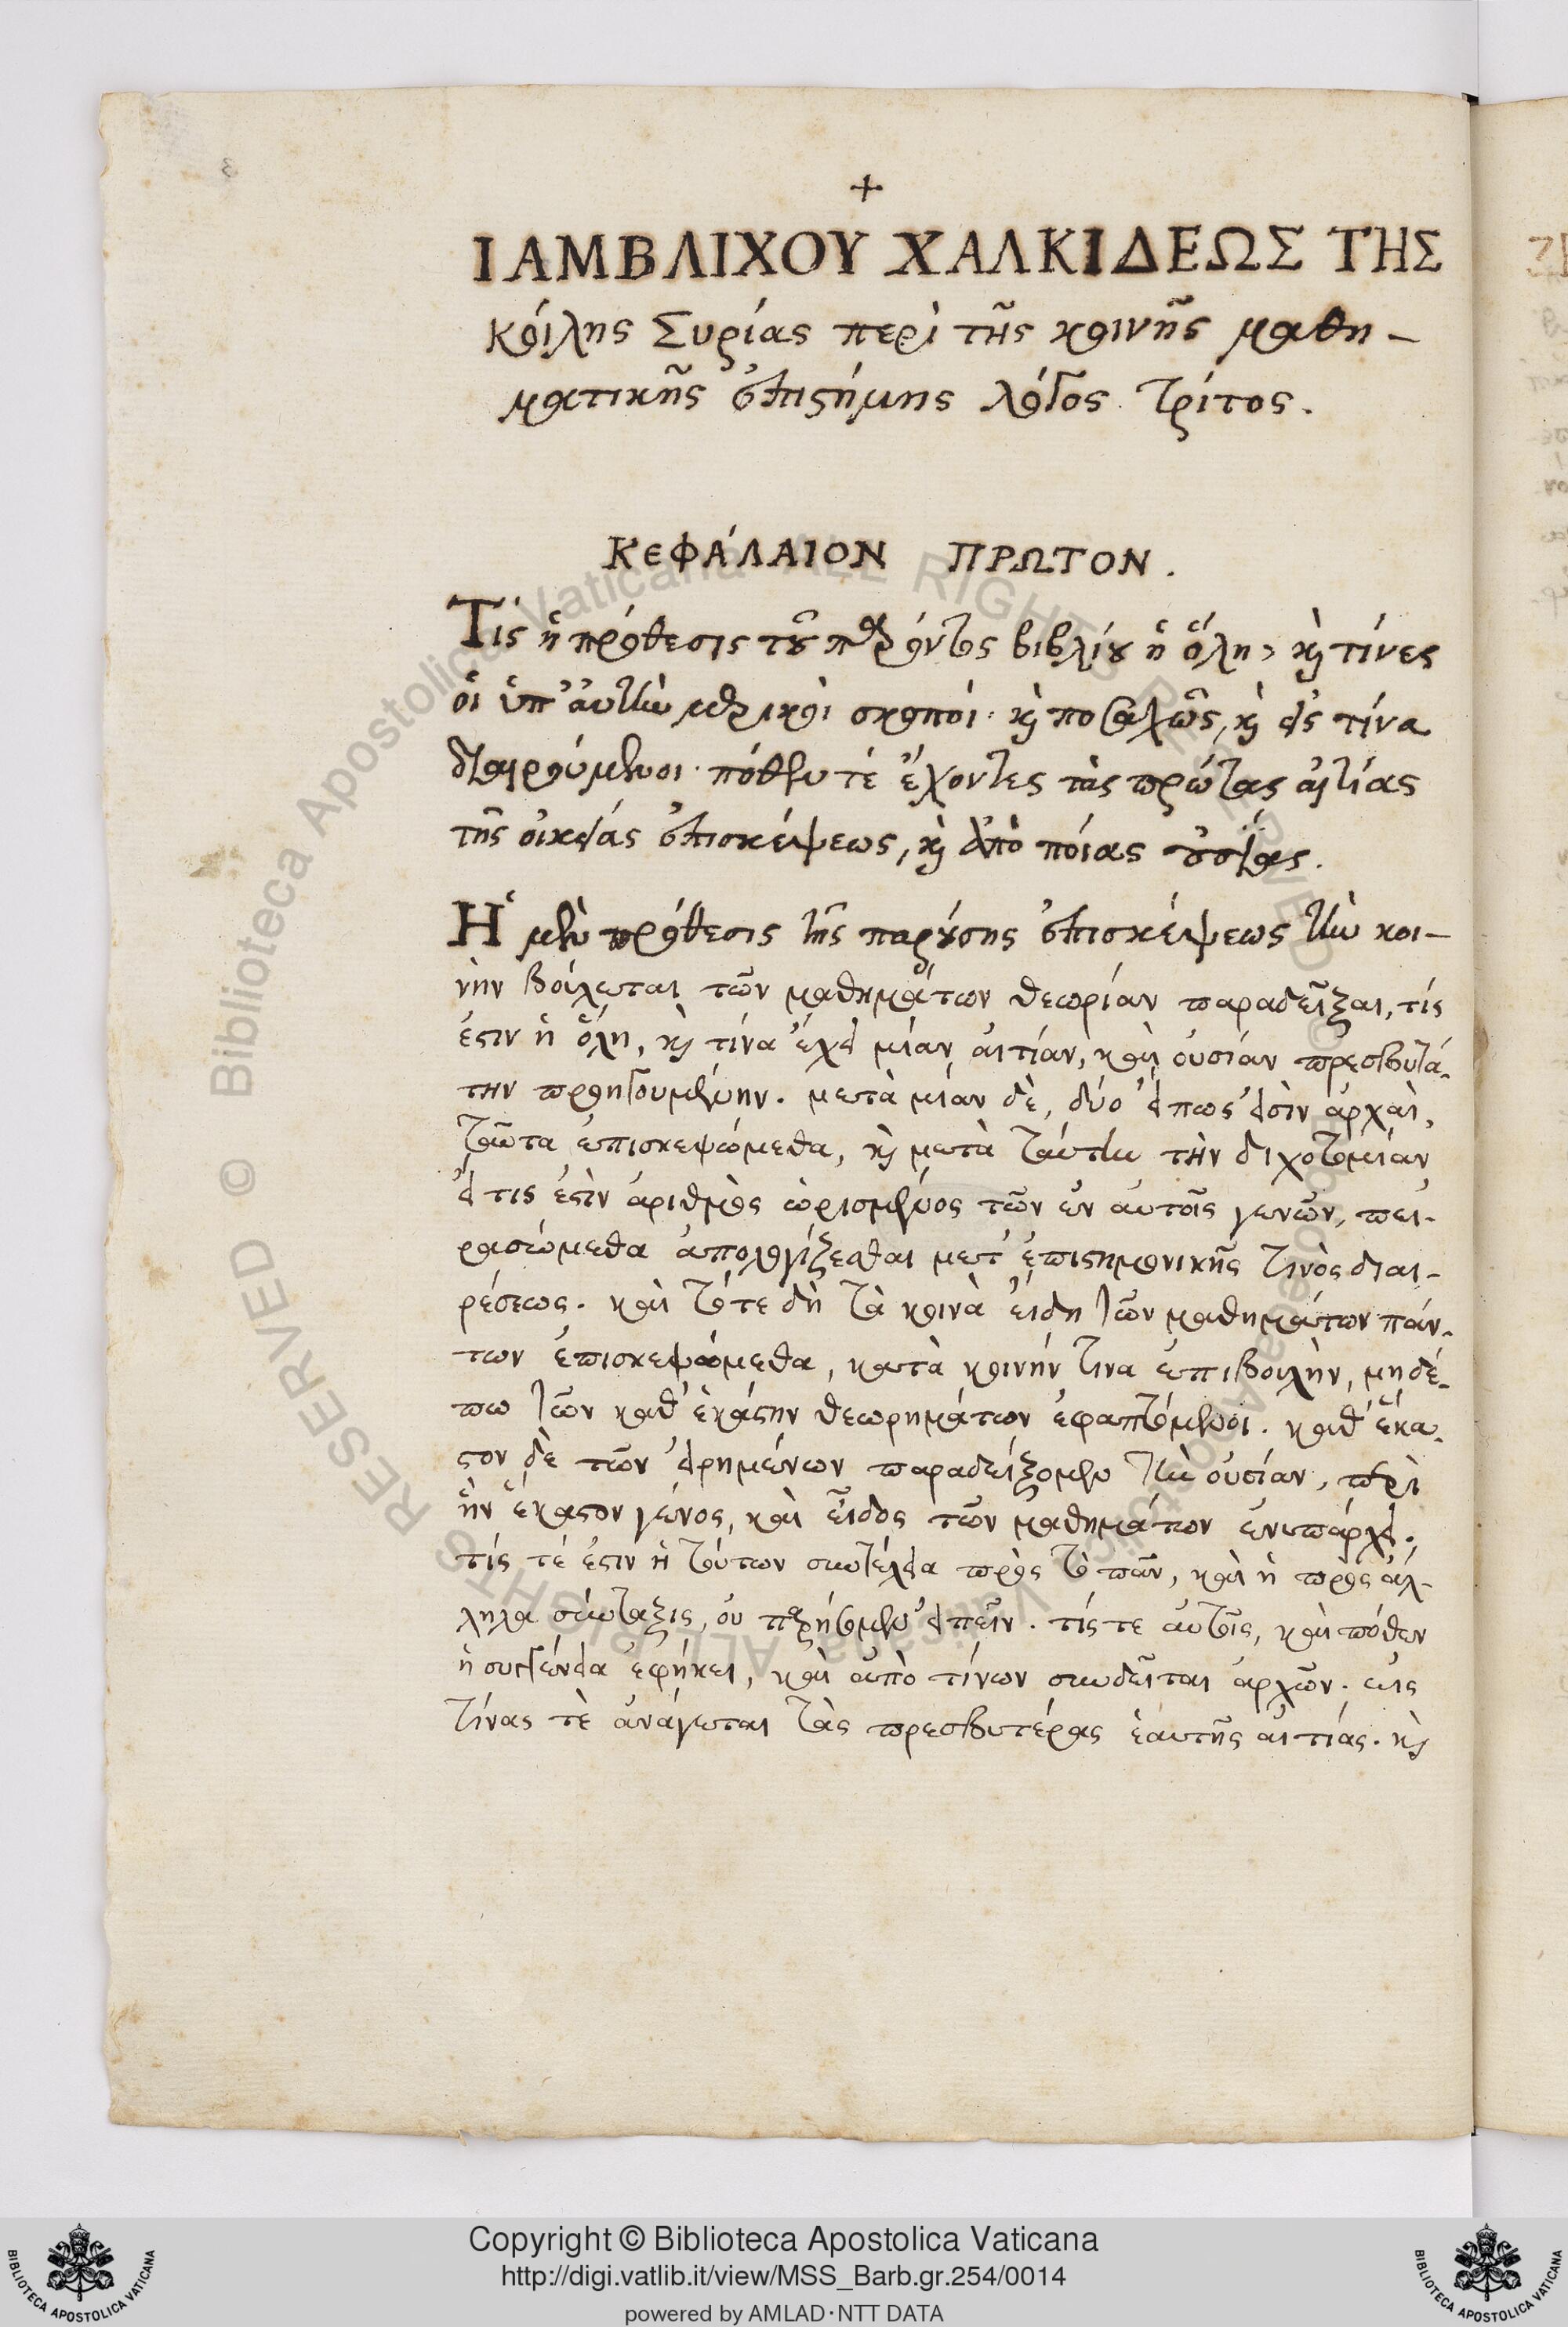 +
ΙΑΜΒΛΙΧΟΥ ΧΑΛΚΙΔΕΩΣ ΤΗΣ
κοίλης Συρίας περὶ τῆς κοινῆς μαθη-
ματικῆς ἐπιστήμης λόγος τρίτος.
ΚΕΦΑΛΑΙΟΝ ΠΡΩΤΟΝ.
Τίς ἡ πρόθεσις τοῦ παρόντος βιβλίου ἡ ὅλη, καὶ τίνες
οἱ ὑπ' αὐτὴν μερικοὶ σκοποί· καὶ ποσαχῶς, καὶ εἰς τίνα
διαιρούμενοι· πόθεν τὲ ἔχοντες τὰς πρώτας αἰτίας
τῆς οἰκείας ἐπισκέψεως, καὶ ἀπὸ ποίας οὐσίας.
Ἡ μὲν πρόθεσις τῆς παρούσης ἐπισκέψεως τὴν κοι-
νὴν βούλεται τῶν μαθημάτων θεωρίαν παραδεῖξαι, τίς
ἐστιν ἡ ὅλη, καὶ τίνα ἔχει μίαν αἰτίαν, καὶ οὐσίαν πρεσβυτά-
την προηγουμένην. μετὰ μίαν δὲ, δύο εἴπως εἰσὶν ἀρχαὶ,
ταῦτα ἐπισκεψώμεθα, καὶ μετὰ ταύτην τὴν διχοτομίαν
εἴ τις ἐστὶν ἀριθμὸς ὡρισμένος τῶν ἐν αὐτοῖς γενῶν, πει-
ρασώμεθα ἀπολογίζεσθαι μετ' ἐπιστημονικῆς τινὸς διαι-
ρέσεως. καὶ τότε δὴ τὰ κοινὰ εἴδη τῶν μαθημάτων πάν-
των ἐπισκεψόμεθα, κατὰ κοινήν τινα ἐπιβολὴν, μηδέ-
πω τῶν καθ' ἑκάστην θεωρημάτων ἐφαπτόμενοι. καθ' ἕκα-
στον δὲ τῶν εἰρημένων παραδείξομεν τὴν οὐσίαν, περὶ
ἣν ἕκαστον γένος, καὶ εἶδος τῶν μαθημάτον ἐνυπάρχει.
τίς τέ ἐστιν ἡ τούτων συντέλεια πρὸς τὸ πᾶν, καὶ ἡ πρὸς ἄλ-
ληλα σύνταξις, οὐ παρήσομεν εἰπεῖν. τίς τε αὐτοῖς, καὶ πόθεν
ἡ συγγένεια ἐφήκει, καὶ ἀπὸ τίνων συνδεῖται ἀρχῶν. εἰς
τίνας τὲ ἀνάγεται τὰς πρεσβυτέρας ἑαυτῆς αἰτίας. καὶ
Biblioteca Apostolica Vaticana ALL RIGHTS RESERVED ©
Copyright © Biblioteca Apostolica Vaticana
http://digi.vatlib.it/view/MSS_Barb.gr.254/0014
powered by AMLAD·NTT DATA
BIBLIOTECA APOSTOLICA VATICANA
BIBLIOTECA APOSTOLICA VATICANA